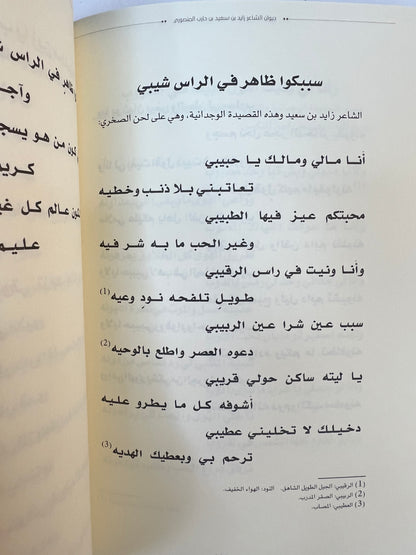 ديوان الشاعر زايد بن سعيد بن حارب المنصوري
سببكوا ظاهر في الراس شيبي
الشاعر زايد بن سعيد وهذه القصيدة الوجدانية، وهي على لحن الصخري:
أنا مالي ومالك يا حبيبي
تعاتبني بلا ذنب وخطيه
محبتكم عيز فيها الطبيبي
وغير الحب ما به شر فيه
وأنا ونيت في راس الرقيبي
طويلٍ تلفحه نودٍ وعيه(1)
سبب عين شرا عين الربيبي
دعوه العصر واطلع بالوحيه(2)
يا ليته ساكن حولي قريبي
أشوفه كل ما يطرو عليه
دخيلك لا تخليني عطيبي
ترحم بي وبعطيك الهديه(3)
(1) الرقيبي: الجبل الطويل الشاهق. النود: الهواء الخفيف.
(2) الربيبي: الصقر المدرب.
(3) العطيبي: المصاب.
ظاهر في الراس شيبي
وآجـ
كون من هو يسجـ
كريـ
عالم كل غيـ
عليم